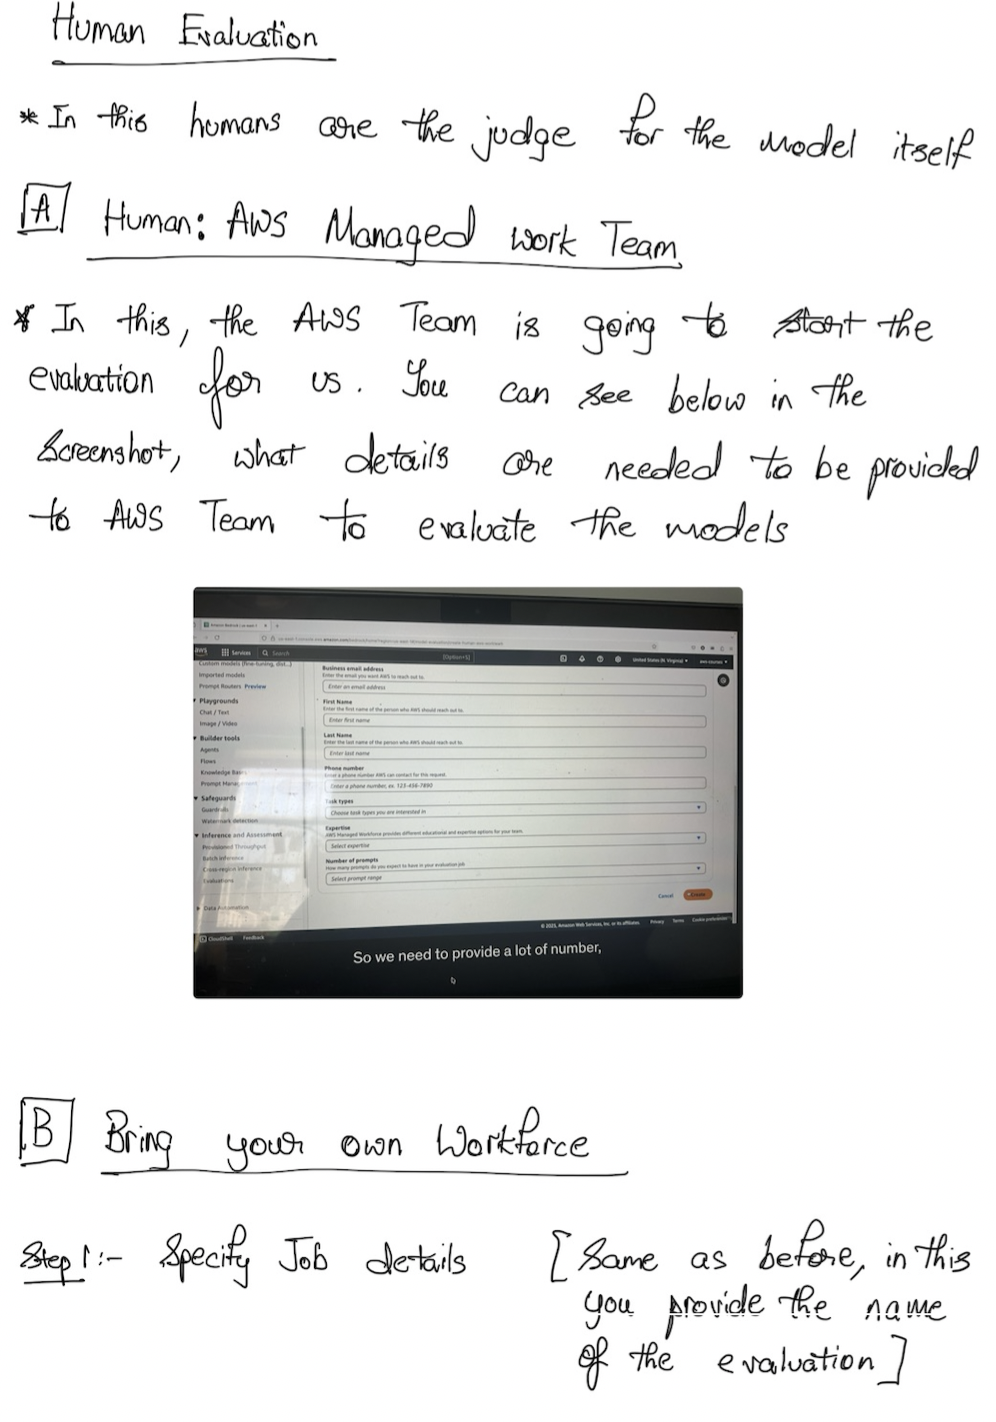 Human Evaluation
* In this humans are the judge for the model itself
A Human: AWS Managed Work Team
* In this, the AWS Team is going to start the
evaluation for us. You can see below in the
Screenshot, what details are needed to be provided
to AWS Team to evaluate the models
aws Services Search [Option+S] United States (N. Virginia)
Custom models (fine-tuning, dist...)
Imported models
Prompt Routers Preview
Playgrounds
Chat / Text
Image / Video
Builder tools
Agents
Flows
Knowledge Bases
Prompt Management
Safeguards
Guardrails
Watermark detection
Inference and Assessment
Provisioned Throughput
Batch inference
Cross-region inference
Evaluations
Data Automation
Business email address
Enter the email you want AWS to reach out to.
Enter an email address
First Name
Enter the first name of the person who AWS should reach out to.
Enter first name
Last Name
Enter the last name of the person who AWS should reach out to.
Enter last name
Phone number
Enter a phone number AWS can contact for this request.
Enter a phone number, ex. 123-456-7890
Task types
Choose task types you are interested in
Expertise
AWS Managed Workforce provides different educational and expertise options for your team.
Select expertise
Number of prompts
How many prompts do you expect to have in your evaluation job
Select prompt range
Cancel Create
CloudShell Feedback © 2025, Amazon Web Services, Inc. or its affiliates. Privacy Terms Cookie preferences
So we need to provide a lot of number,
B Bring your own Workforce
Step 1:- Specify Job details [Same as before, in this
you provide the name
of the evaluation]